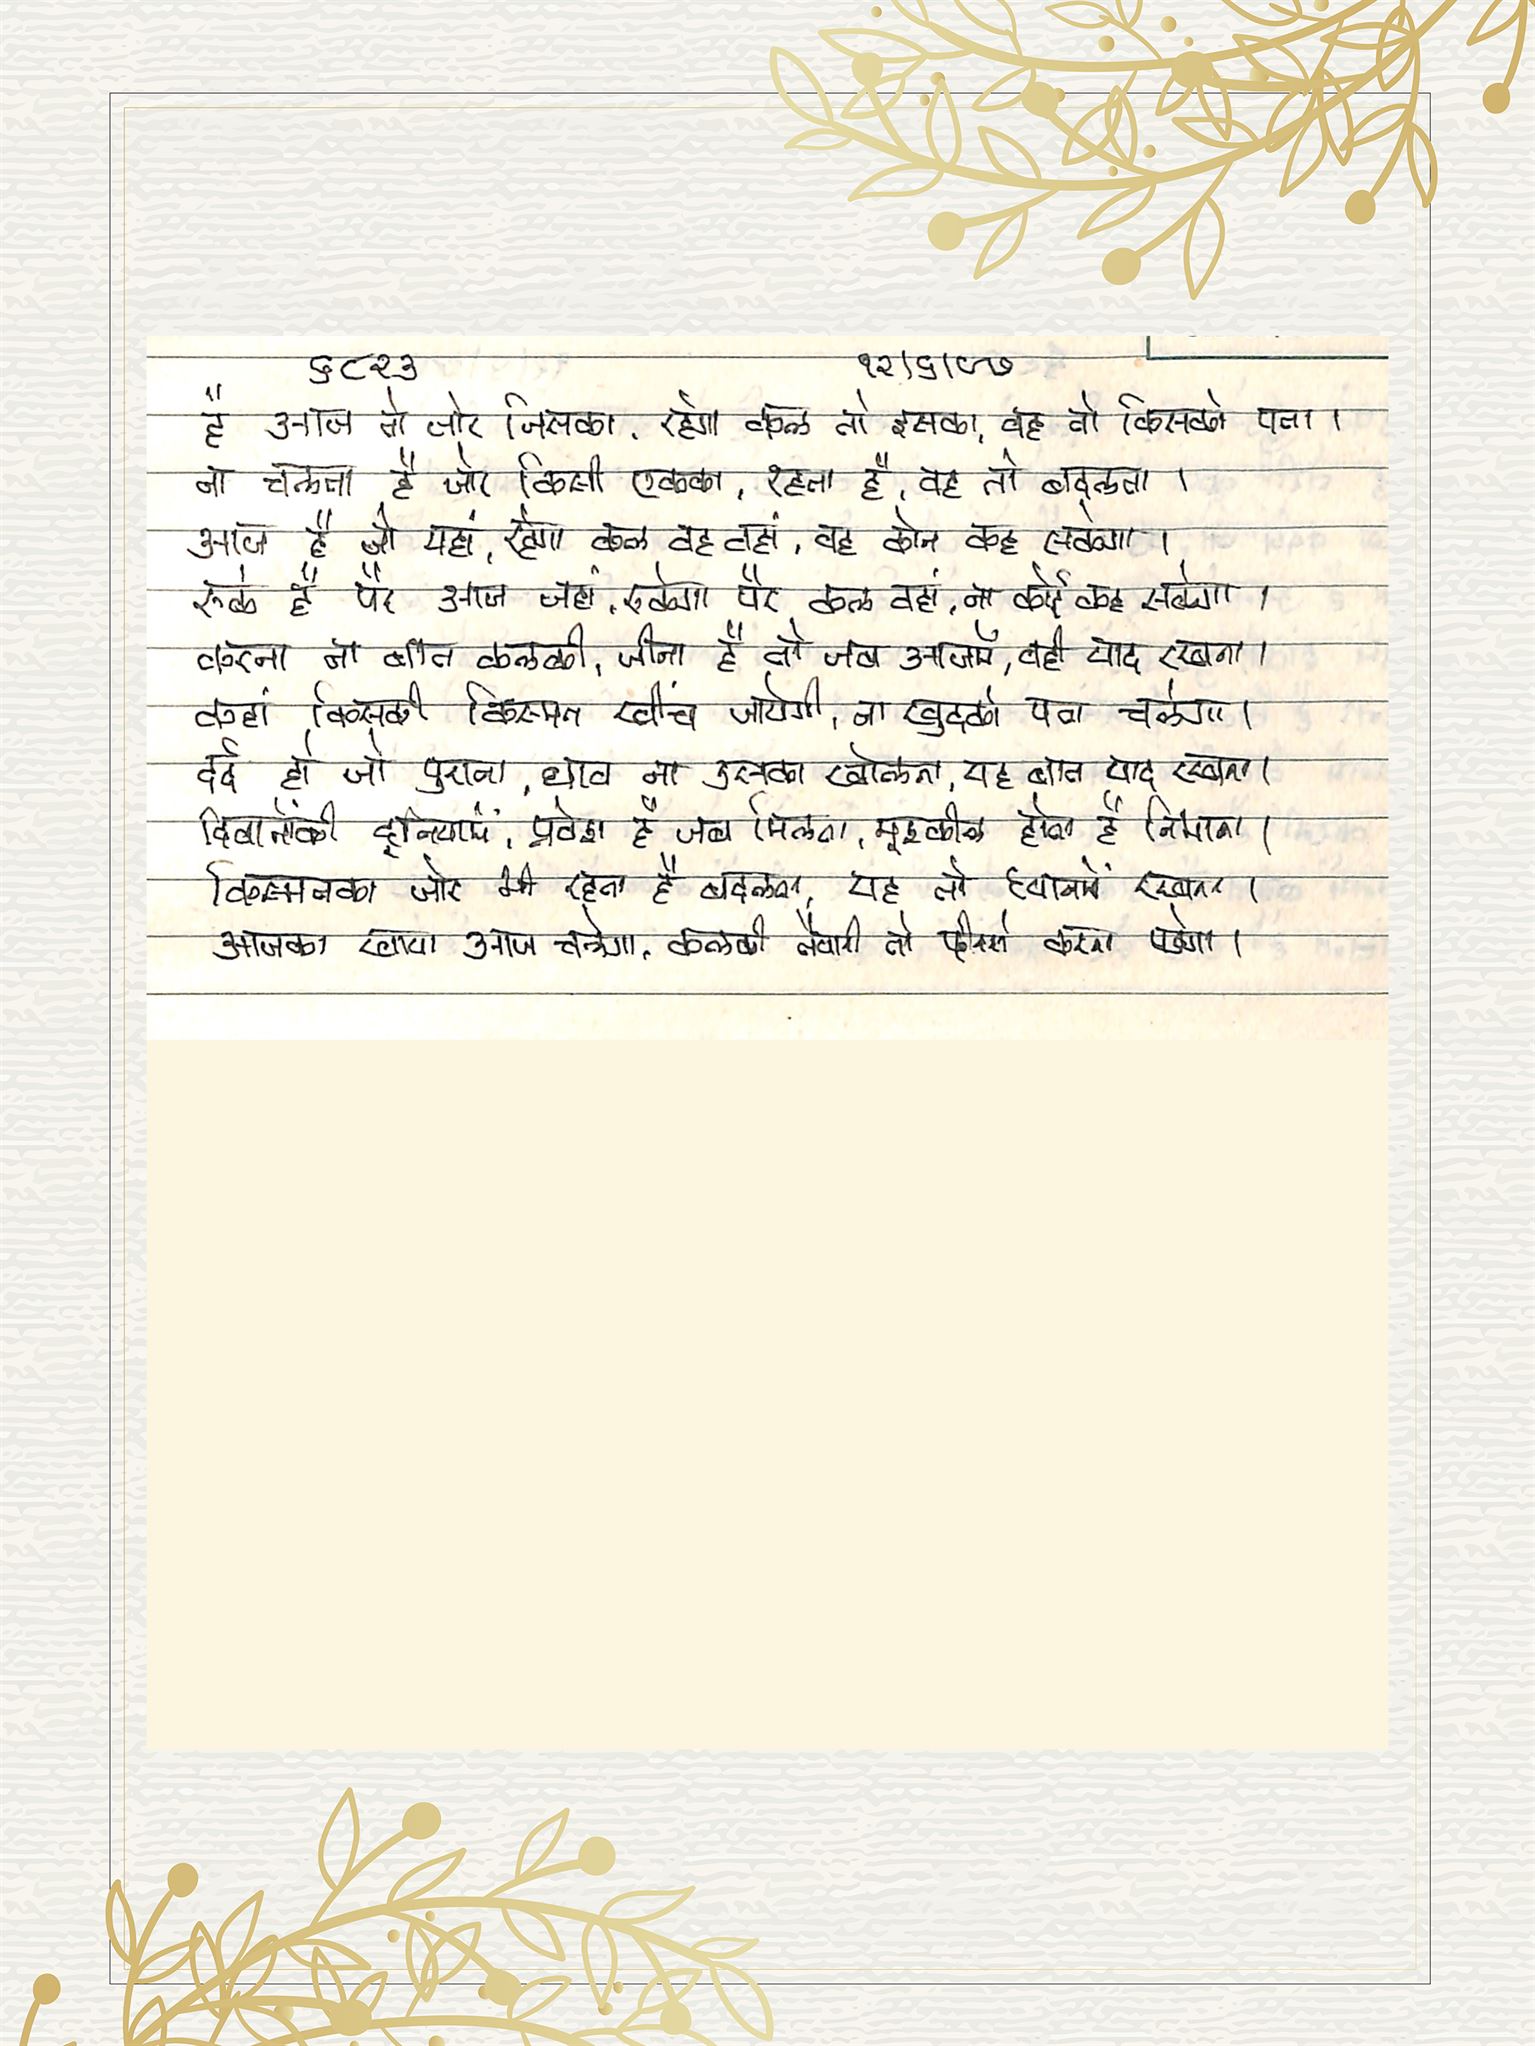 ६८२३ १२/६/९७
है आज तो जोर जिसका, रहेगा कल तो इसका, वह तो किसको पता ।
ना चलता है जोर किसी एकका, रहता है, वह तो बदलता ।
आज है जो यहां, रहेगा कल वह वहां, वह कोन कह सकेगा ।
रूके है पैर आज जहां, रूकेगा पैर कल वहां, ना कोई कह सकेगा ।
करना ना बात कलकी, जीना है तो जब आजमें, वही याद रखना ।
कहां किसकी किस्मत खींच जायेगी, ना खुदको पता चलेगा ।
दर्द हो जो पुराना, घाव ना उसका खोलना, यह बात याद रखना ।
दिवानोंकी दूनियामें, प्रवेश है जब मिलता, मूश्कील होता है निभाना ।
किस्मतका जोर भी रहता है बदलता, यह तो ध्यानमें रखना ।
आजका खाया आज चलेगा, कलकी तैयारी तो फीरसे करना पडेगा ।